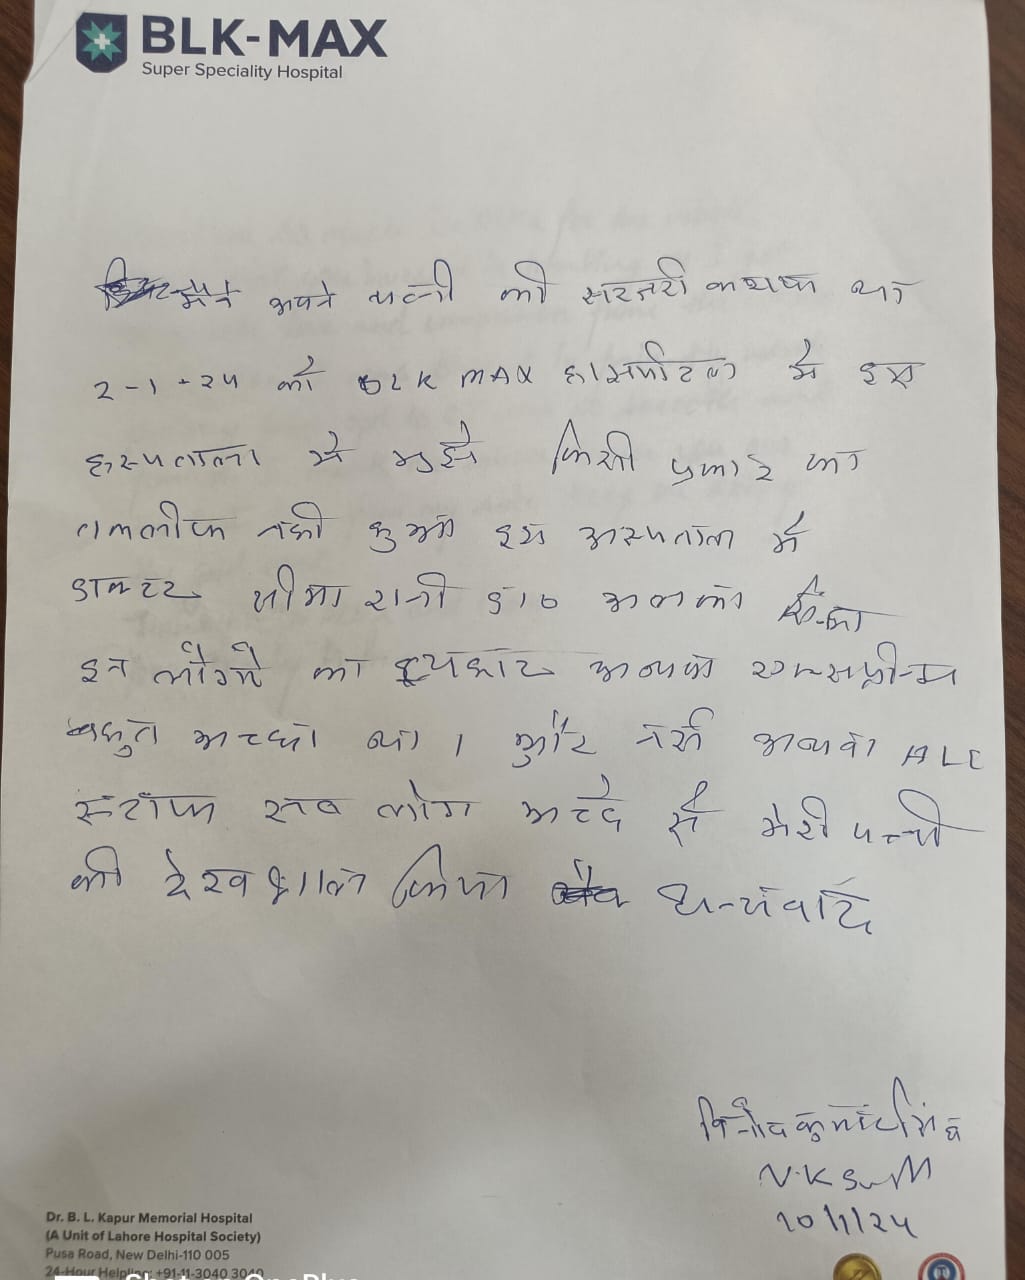 BLK-MAX
Super Speciality Hospital
मैने अपने पत्नी की सरजरी करायका था
2-1-24 को BLK MAX हास्पीटल मे इस
हस्पताल मे मुझे किसी प्रकार का
तकलीफ नही हुआ इस अस्पताल मे
डाक्टर सीमा रानी डा०
इन लोगो का
बहुत अच्छा था। और नर्स ALL
स्टाफ सब लोग अच्छे से मेरी पत्नी
की देखभाल किया धन्यवाद
विनोद कुमार सिंघ
N.K
10/1/24
Dr. B. L. Kapur Memorial Hospital
(A Unit of Lahore Hospital Society)
Pusa Road, New Delhi-110 005
24-Hour Helpline: +91-11-3040 3040